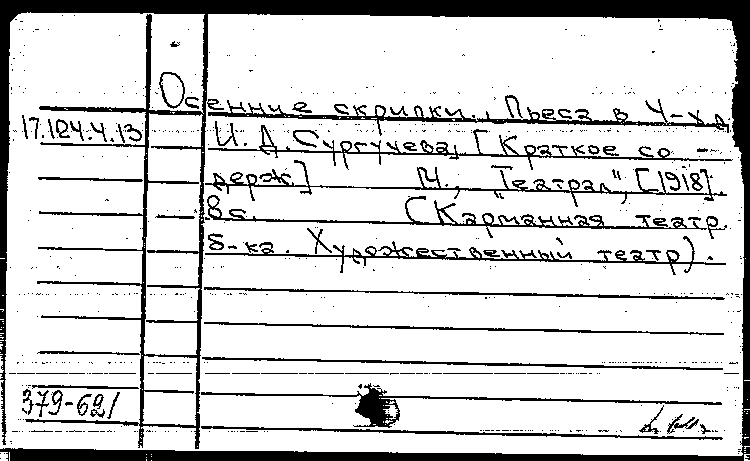 Осенние скрипки., Пьеса в 4-х д.
17.124.4.13 И. Д. Сургучева, [Краткое со-
держ.] М., "Театрал", [1918].
8 с. (Карманная театр.
б-ка. Художественный театр).
379-62/